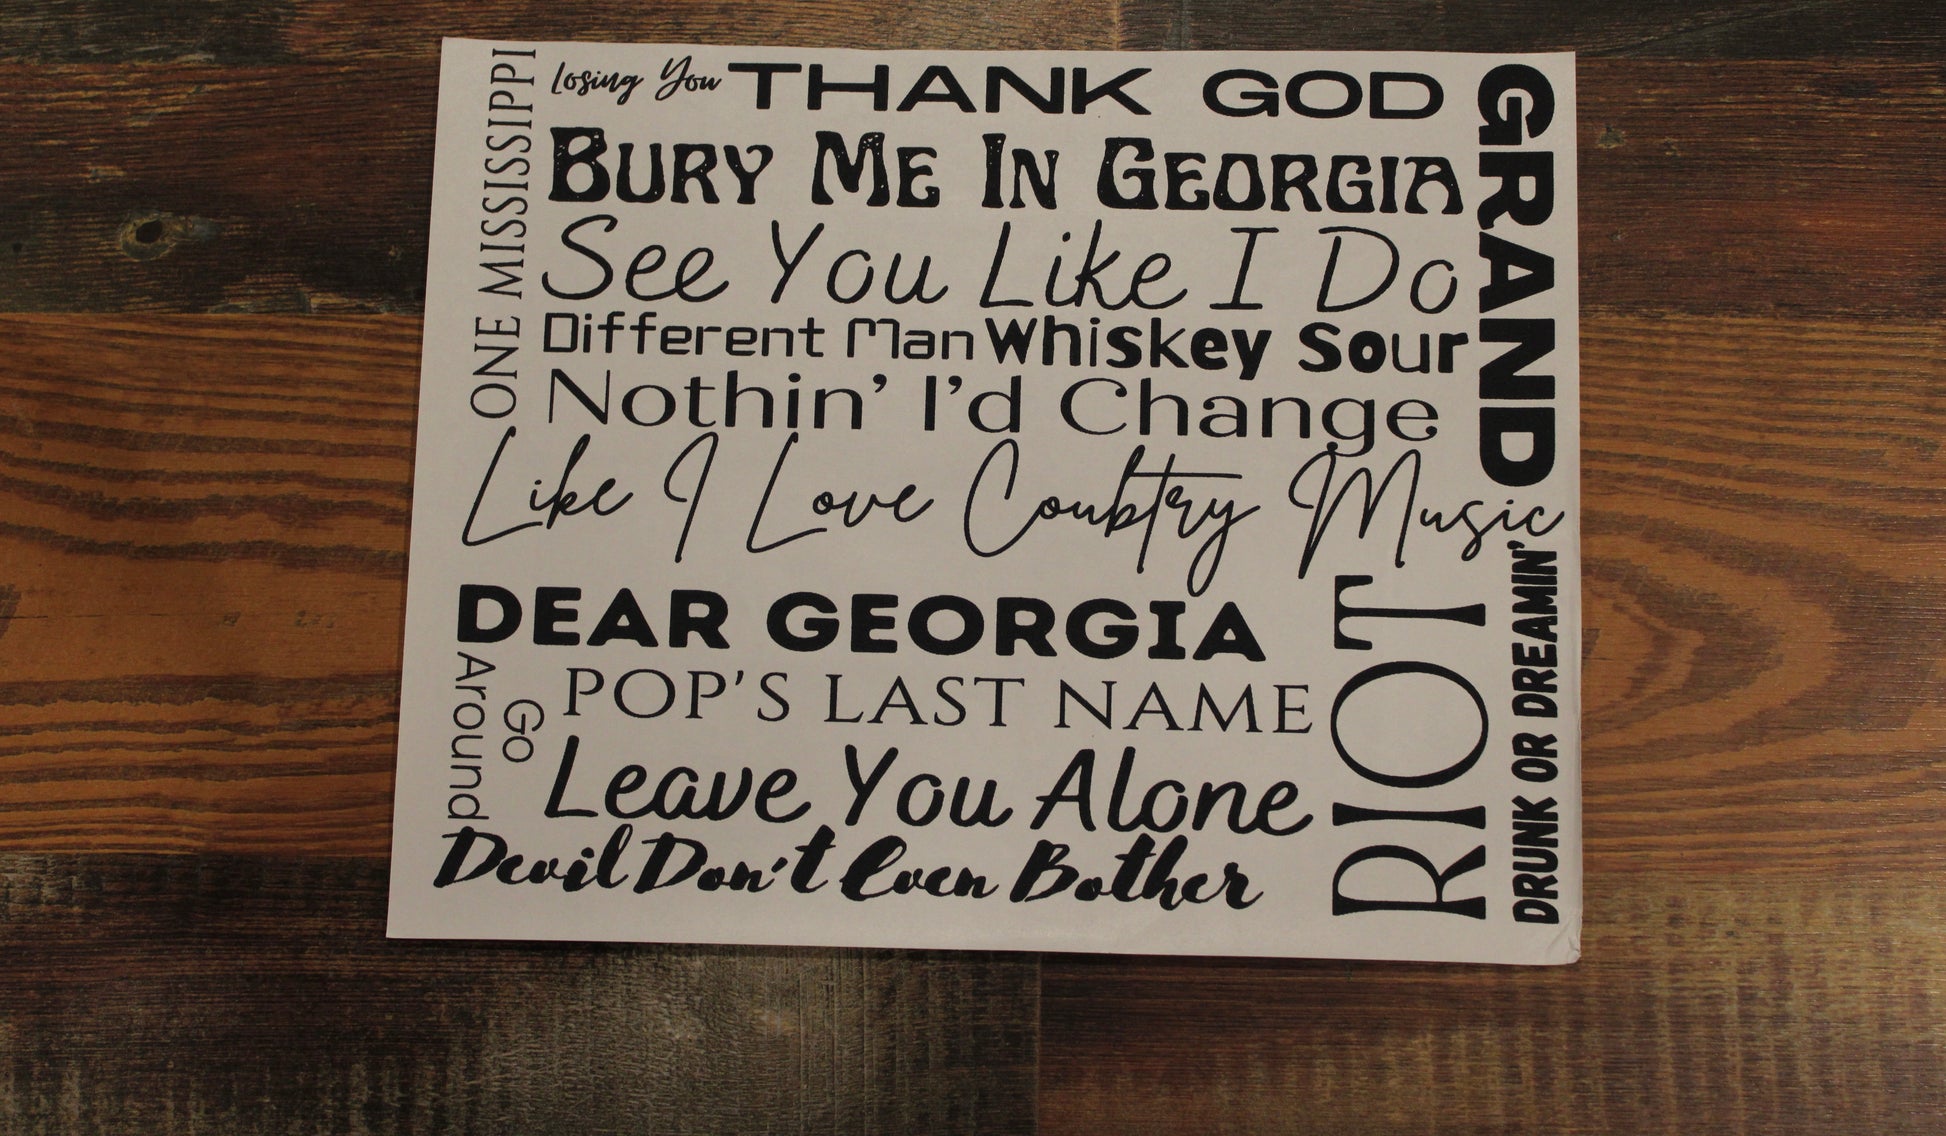 ONE MISSISSIPPI
Losing You
THANK GOD
BURY ME IN GEORGIA
See You Like I Do
Different Man
Whiskey Sour
Nothin' I'd Change
GRAND
Like I Love Coubtry Music
DEAR GEORGIA
Go
Around
POP'S LAST NAME
Leave You Alone
Devil Don't Even Bother
RIOT
DRUNK OR DREAMIN'